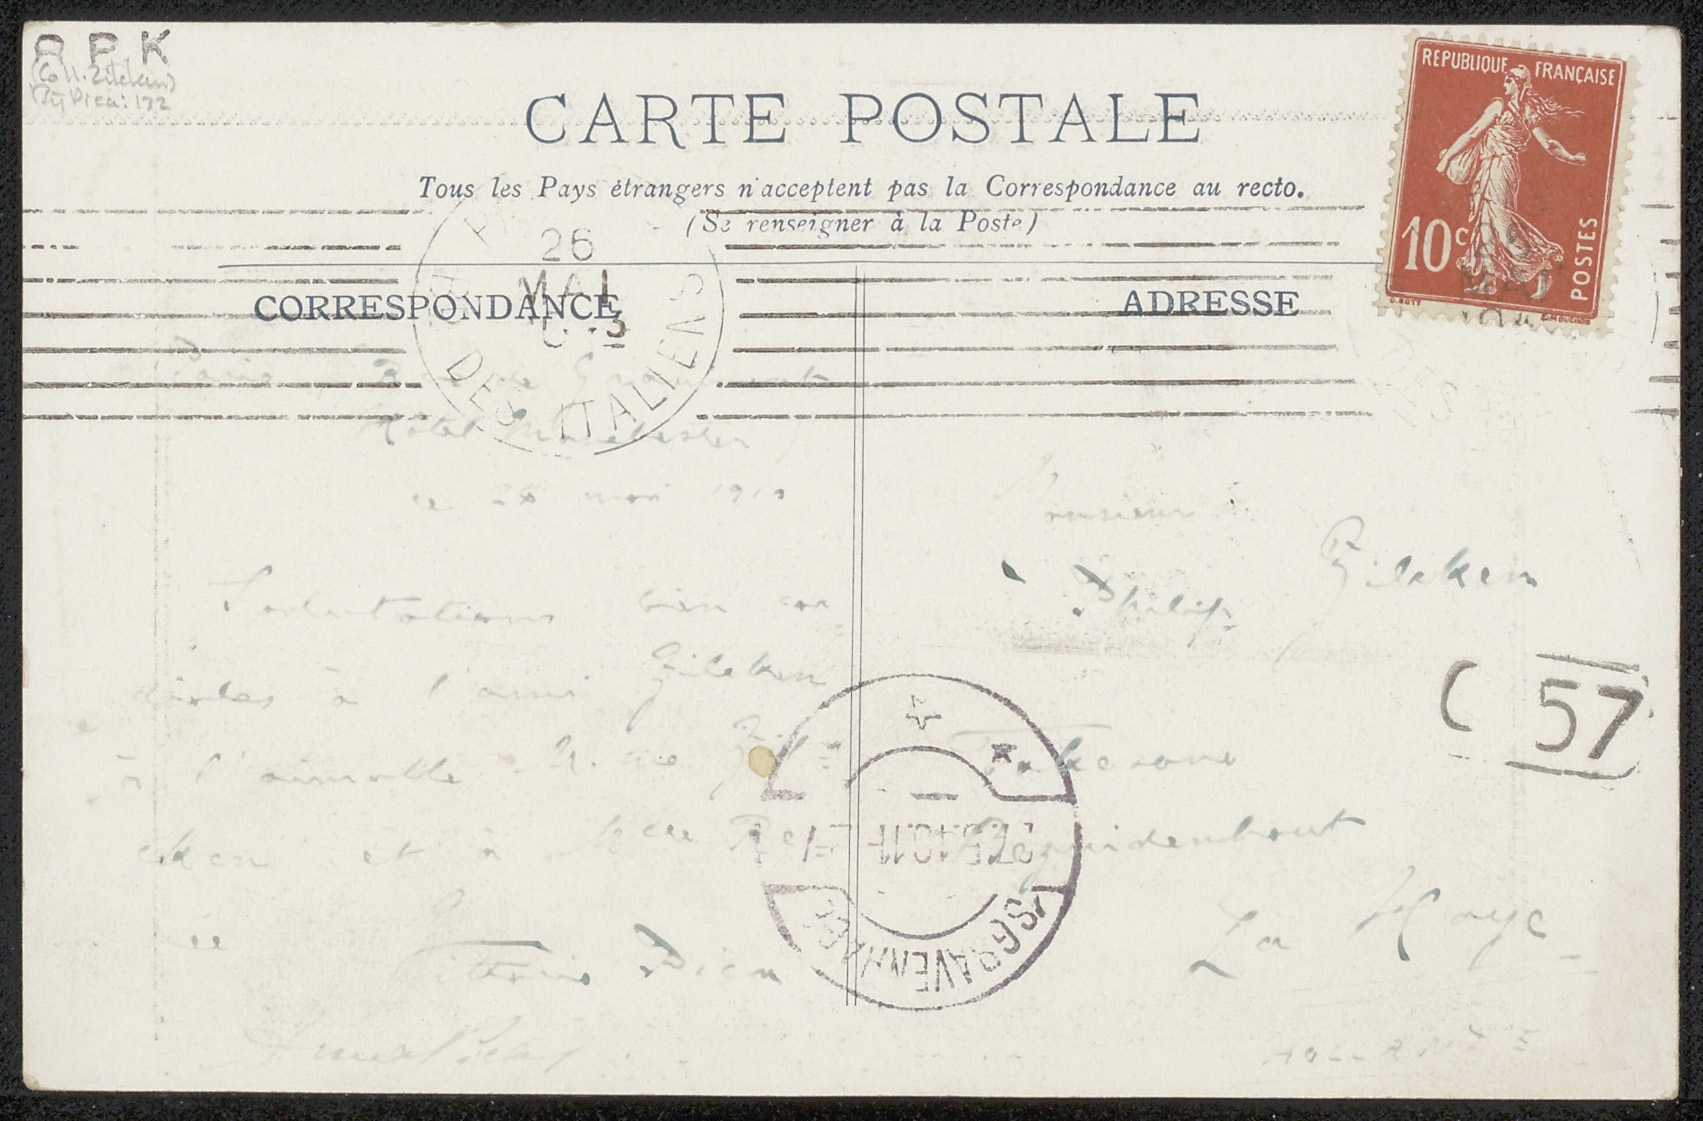 R P K
(Coll. Zilcken)
Pica: 132
CARTE POSTALE
Tous les Pays étrangers n'acceptent pas la Correspondance au recto.
(Se renseigner à la Poste)
REPUBLIQUE FRANÇAISE
10c
POSTES
26
MAI
DES ITALIENS
CORRESPONDANCE
ADRESSE
Paris
Hotel Manchester
ce 26 mai 1910
Salutations bien cor
diales à l'ami Zilcken
à l'aimable Mme Zil=
cken et à Melle Re=
née
Vittorio Pica
Anna Pica
Monsieur
Philip Zilcken
Bezuidenhout
La Haye
HOLLANDE
C 57
27.5.10.11-
'S GRAVENHAGE